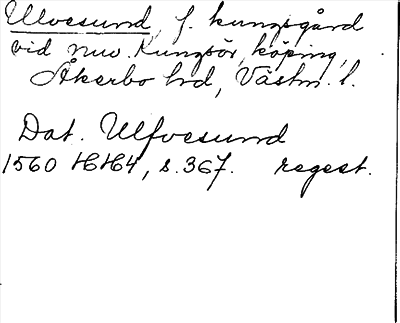 Ulvesund, f. kungsgård
vid nuv. Kungsör, köping,
Åkerbo hd, Västm. l.
Dat. Ulfvesund
1560 HH4, s. 367. regest.